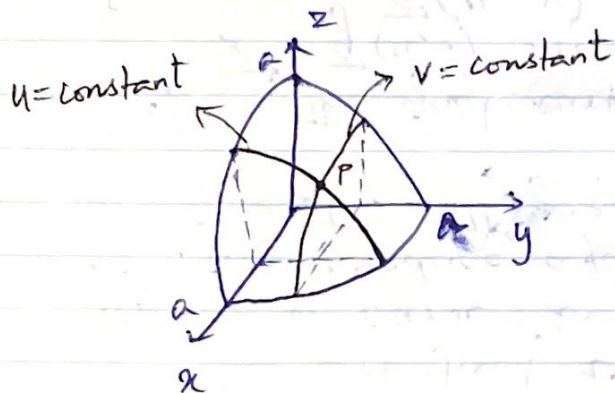 z
a
u=constant
v=constant
P
a
y
a
x